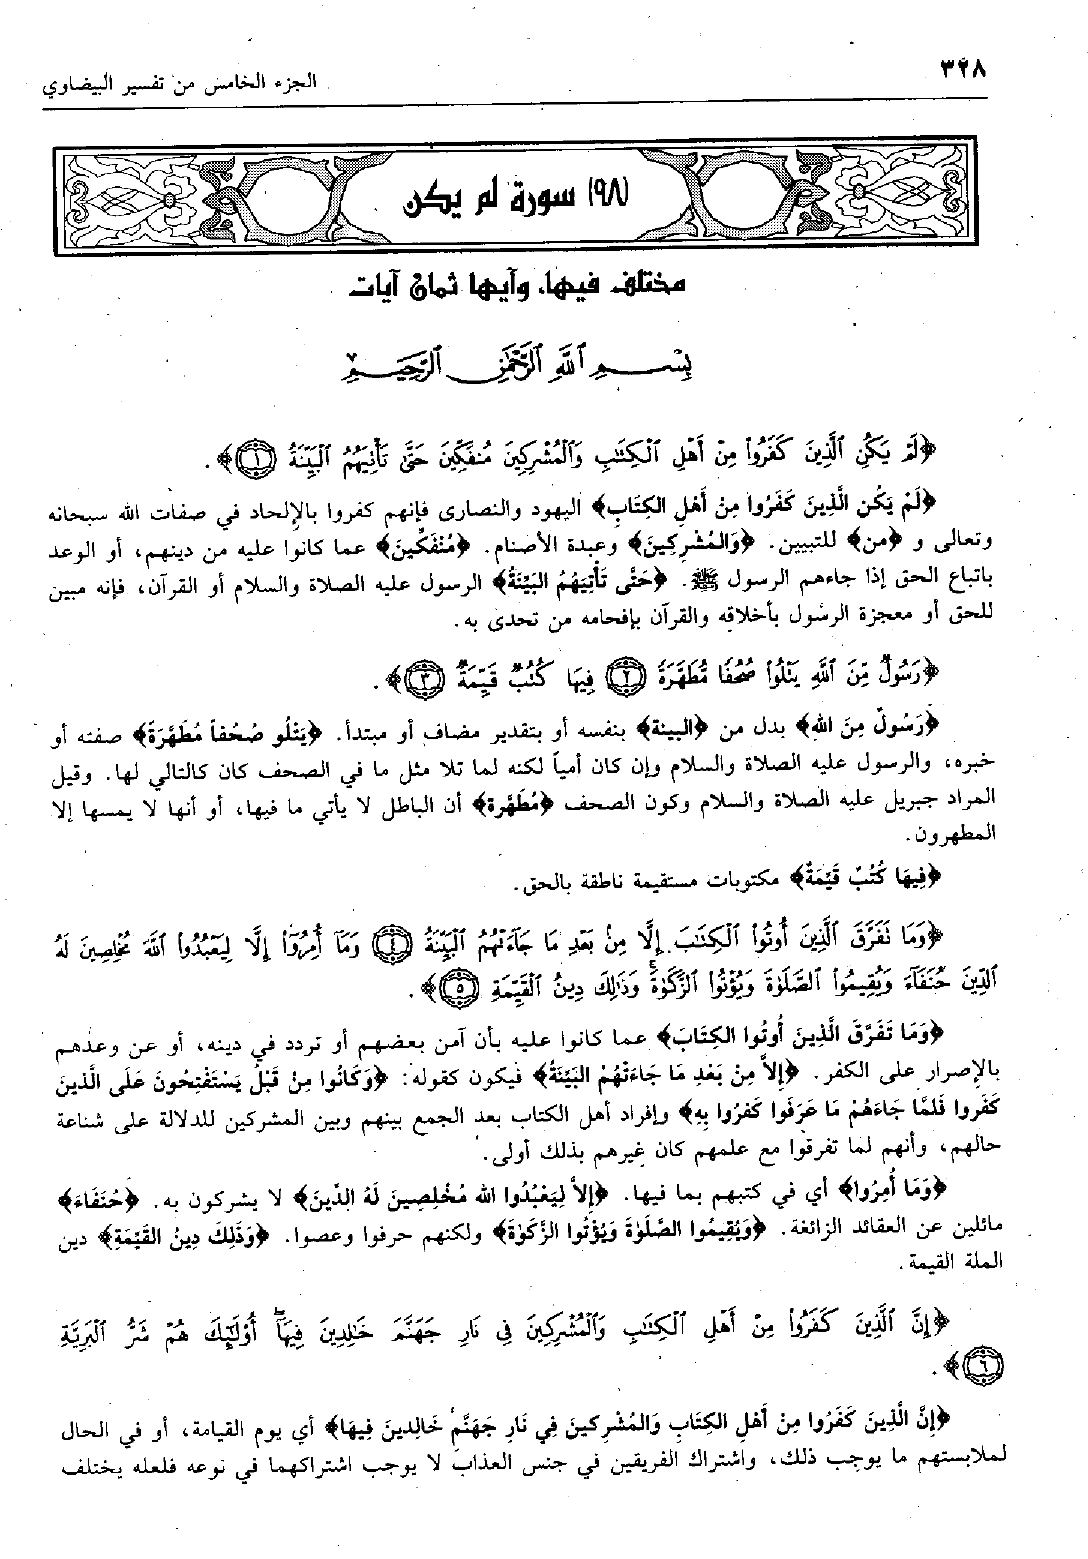 ٣٢٨
الجزء الخامس من تفسير البيضاوي
(٩٨) سورة لم يكن
مختلف فيها، وآيها ثمان آيات
بِسْمِ ٱللَّهِ ٱلرَّحْمَٰنِ ٱلرَّحِيمِ
﴿لَمْ يَكُنِ ٱلَّذِينَ كَفَرُوا۟ مِنْ أَهْلِ ٱلْكِتَٰبِ وَٱلْمُشْرِكِينَ مُنفَكِّينَ حَتَّىٰ تَأْتِيَهُمُ ٱلْبَيِّنَةُ ١﴾.
﴿لَمْ يَكُنِ الَّذِينَ كَفَرُوا مِنْ أَهْلِ الكِتَابِ﴾ اليهود والنصارى فإنهم كفروا بالإلحاد في صفات الله سبحانه
وتعالى و ﴿من﴾ للتبيين. ﴿وَالمُشْرِكِينَ﴾ وعبدة الأصنام. ﴿مُنْفَكِّينَ﴾ عما كانوا عليه من دينهم، أو الوعد
باتباع الحق إذا جاءهم الرسول ﷺ. ﴿حَتَّى تَأْتِيَهُمُ البَيِّنَةُ﴾ الرسول عليه الصلاة والسلام أو القرآن، فإنه مبين
للحق أو معجزة الرسول بأخلاقه والقرآن بإفحامه من تحدى به.
﴿رَسُولٌ مِّنَ ٱللَّهِ يَتْلُوا۟ صُحُفًا مُّطَهَّرَةً ٢ فِيهَا كُتُبٌ قَيِّمَةٌ ٣﴾.
﴿رَسُولٌ مِنَ اللهِ﴾ بدل من ﴿البينة﴾ بنفسه أو بتقدير مضاف أو مبتدأ. ﴿يَتْلُو صُحُفاً مُطَهَّرَةً﴾ صفته أو
خبره، والرسول عليه الصلاة والسلام وإن كان أمياً لكنه لما تلا مثل ما في الصحف كان كالتالي لها. وقيل
المراد جبريل عليه الصلاة والسلام وكون الصحف ﴿مُطَهَّرة﴾ أن الباطل لا يأتي ما فيها، أو أنها لا يمسها إلا
المطهرون.
﴿فِيهَا كُتُبٌ قَيِّمَةٌ﴾ مكتوبات مستقيمة ناطقة بالحق.
﴿وَمَا تَفَرَّقَ ٱلَّذِينَ أُوتُوا۟ ٱلْكِتَٰبَ إِلَّا مِنۢ بَعْدِ مَا جَآءَتْهُمُ ٱلْبَيِّنَةُ ٤ وَمَآ أُمِرُوٓا۟ إِلَّا لِيَعْبُدُوا۟ ٱللَّهَ مُخْلِصِينَ لَهُ
ٱلدِّينَ حُنَفَآءَ وَيُقِيمُوا۟ ٱلصَّلَوٰةَ وَيُؤْتُوا۟ ٱلزَّكَوٰةَ ۚ وَذَٰلِكَ دِينُ ٱلْقَيِّمَةِ ٥﴾.
﴿وَمَا تَفَرَّقَ الَّذِينَ أُوتُوا الكِتَابَ﴾ عما كانوا عليه بأن آمن بعضهم أو تردد في دينه، أو عن وعدهم
بالإصرار على الكفر. ﴿إِلاَّ مِنْ بَعْدِ مَا جَاءَتْهُمُ البَيِّنَةُ﴾ فيكون كقوله: ﴿وَكَانُوا مِنْ قَبْلُ يَسْتَفْتِحُونَ عَلَى الَّذِينَ
كَفَروا فَلَمَّا جَاءَهُمْ مَا عَرَفُوا كَفَرُوا بِهِ﴾ وإفراد أهل الكتاب بعد الجمع بينهم وبين المشركين للدلالة على شناعة
حالهم، وأنهم لما تفرقوا مع علمهم كان غيرهم بذلك أولى.
﴿وَمَا أُمِرُوا﴾ أي في كتبهم بما فيها. ﴿إِلاَّ لِيَعْبُدُوا الله مُخْلِصِينَ لَهُ الدِّينَ﴾ لا يشركون به. ﴿حُنَفَاءَ﴾
مائلين عن العقائد الزائغة. ﴿وَيُقِيمُوا الصَّلَوٰةَ وَيُؤْتُوا الزَّكَوٰةَ﴾ ولكنهم حرفوا وعصوا. ﴿وَذَلِكَ دِينُ القَيِّمَةِ﴾ دين
الملة القيمة.
﴿إِنَّ ٱلَّذِينَ كَفَرُوا۟ مِنْ أَهْلِ ٱلْكِتَٰبِ وَٱلْمُشْرِكِينَ فِى نَارِ جَهَنَّمَ خَٰلِدِينَ فِيهَآ ۚ أُو۟لَٰٓئِكَ هُمْ شَرُّ ٱلْبَرِيَّةِ
٦﴾.
﴿إِنَّ الَّذِينَ كَفَرُوا مِنْ أَهْلِ الكِتَابِ وَالمُشْرِكِينَ فِي نَارِ جَهَنَّمَ خَالِدِينَ فِيهَا﴾ أي يوم القيامة، أو في الحال
لملابستهم ما يوجب ذلك، واشتراك الفريقين في جنس العذاب لا يوجب اشتراكهما في نوعه فلعله يختلف